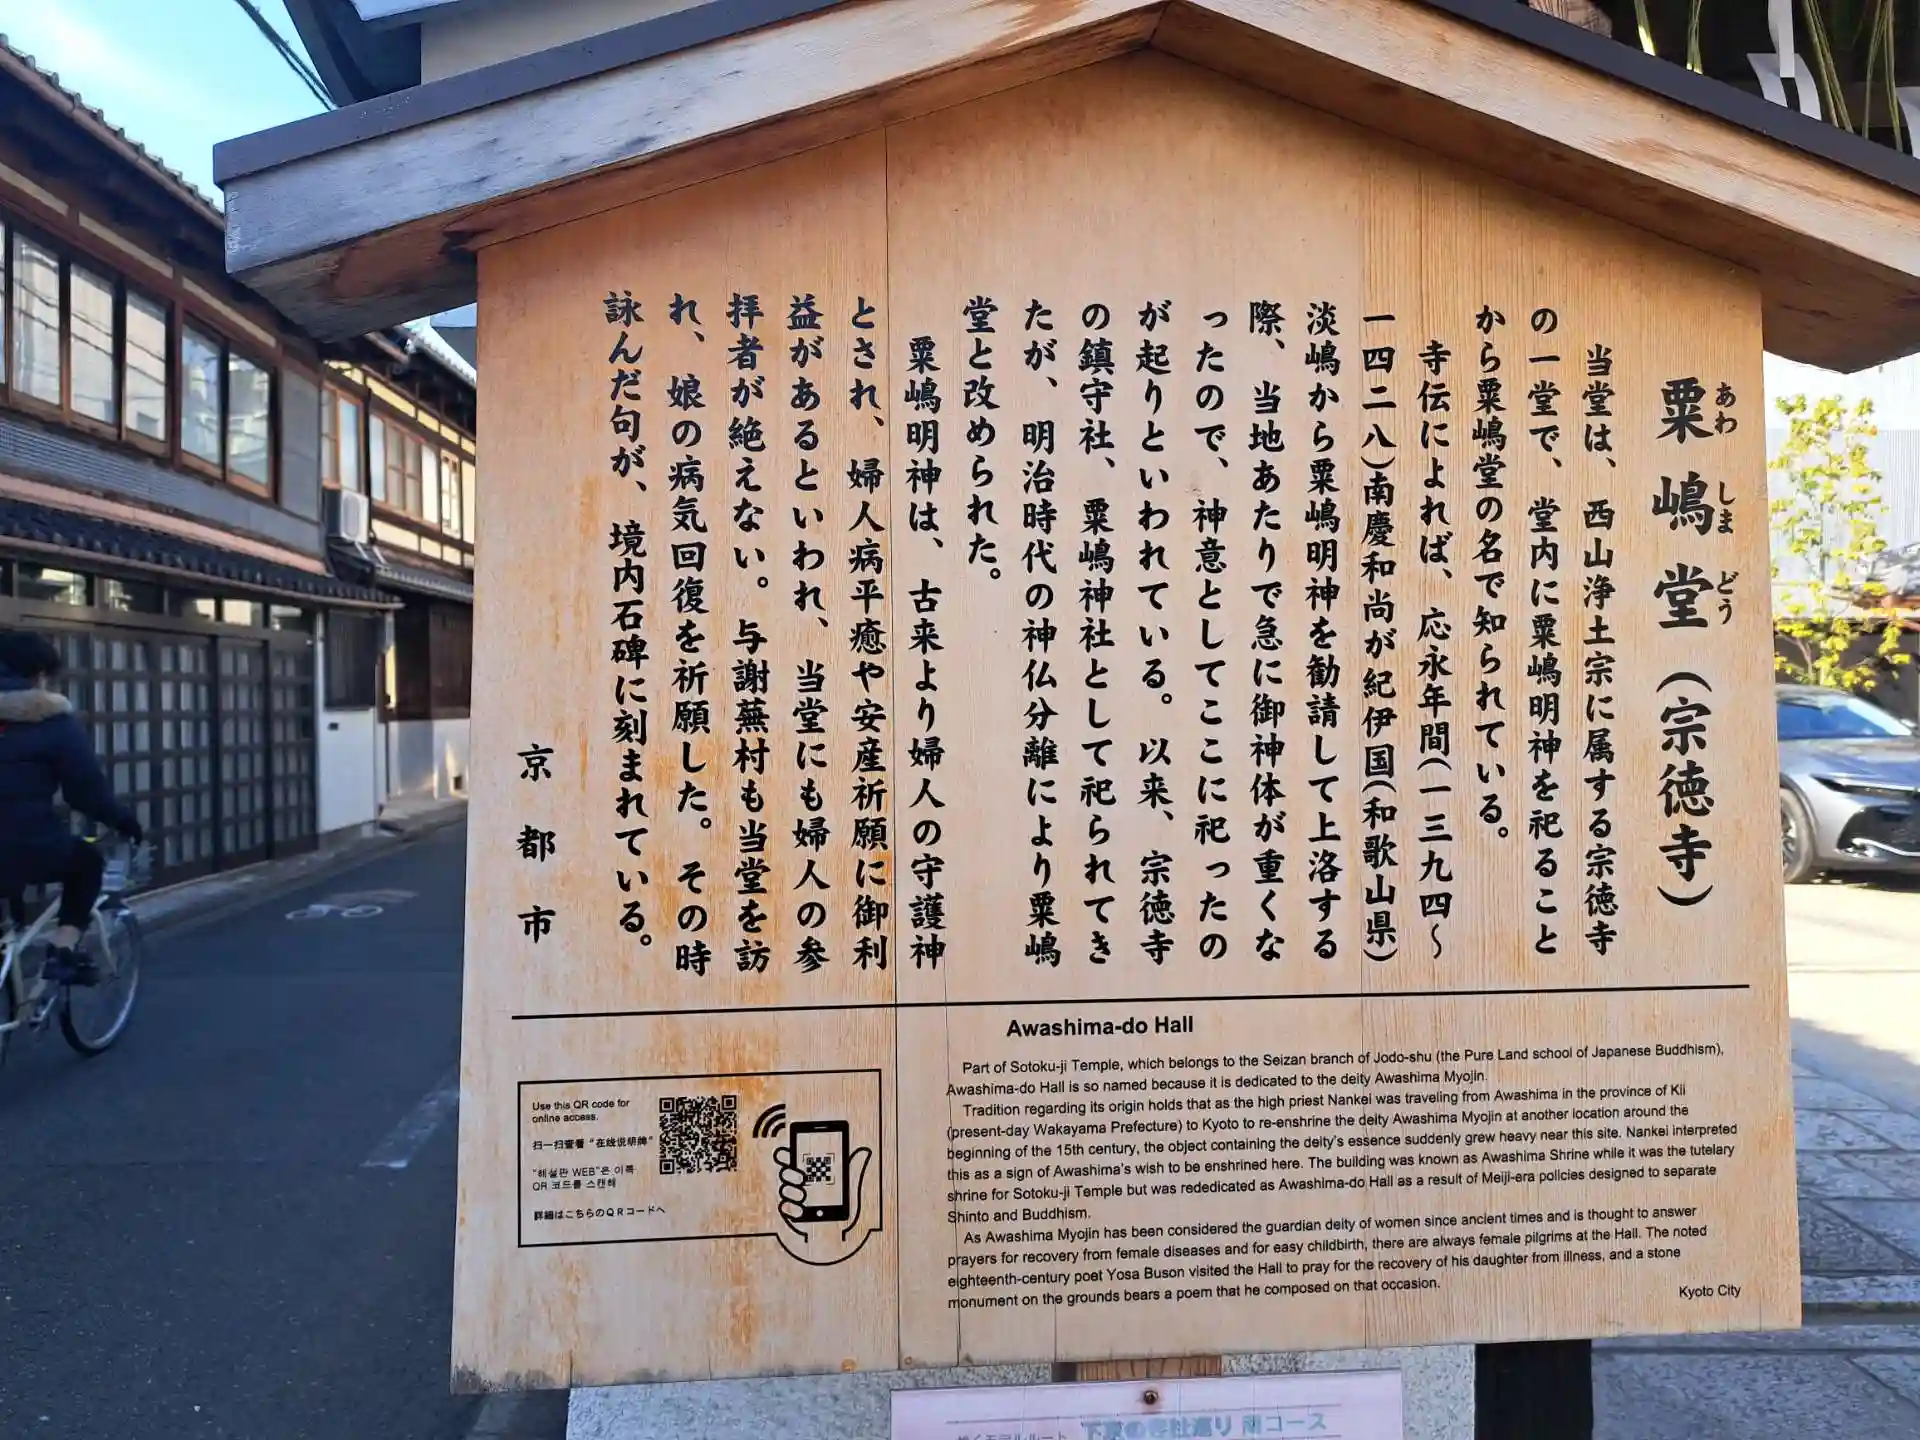 粟嶋堂（宗徳寺）
あわ しま どう
当堂は、西山浄土宗に属する宗徳寺
の一堂で、堂内に粟嶋明神を祀ること
から粟嶋堂の名で知られている。
寺伝によれば、応永年間（一三九四〜
一四二八）南慶和尚が紀伊国（和歌山県）
淡嶋から粟嶋明神を勧請して上洛する
際、当地あたりで急に御神体が重くな
ったので、神意としてここに祀ったの
が起りといわれている。以来、宗徳寺
の鎮守社、粟嶋神社として祀られてき
たが、明治時代の神仏分離により粟嶋
堂と改められた。
粟嶋明神は、古来より婦人の守護神
とされ、婦人病平癒や安産祈願に御利
益があるといわれ、当堂にも婦人の参
拝者が絶えない。与謝蕪村も当堂を訪
れ、娘の病気回復を祈願した。その時
詠んだ句が、境内石碑に刻まれている。
京都市
Awashima-do Hall
Part of Sotoku-ji Temple, which belongs to the Seizan branch of Jodo-shu (the Pure Land school of Japanese Buddhism),
Awashima-do Hall is so named because it is dedicated to the deity Awashima Myojin.
Tradition regarding its origin holds that as the high priest Nankei was traveling from Awashima in the province of Kii
(present-day Wakayama Prefecture) to Kyoto to re-enshrine the deity Awashima Myojin at another location around the
beginning of the 15th century, the object containing the deity's essence suddenly grew heavy near this site. Nankei interpreted
this as a sign of Awashima's wish to be enshrined here. The building was known as Awashima Shrine while it was the tutelary
shrine for Sotoku-ji Temple but was rededicated as Awashima-do Hall as a result of Meiji-era policies designed to separate
Shinto and Buddhism.
As Awashima Myojin has been considered the guardian deity of women since ancient times and is thought to answer
prayers for recovery from female diseases and for easy childbirth, there are always female pilgrims at the Hall. The noted
eighteenth-century poet Yosa Buson visited the Hall to pray for the recovery of his daughter from illness, and a stone
monument on the grounds bears a poem that he composed on that occasion.
Kyoto City
Use this QR code for
online access.
扫一扫查看“在线说明牌”
"해설판 WEB"은 이쪽
QR 코드를 스캔해
詳細はこちらのQRコードへ
南コース